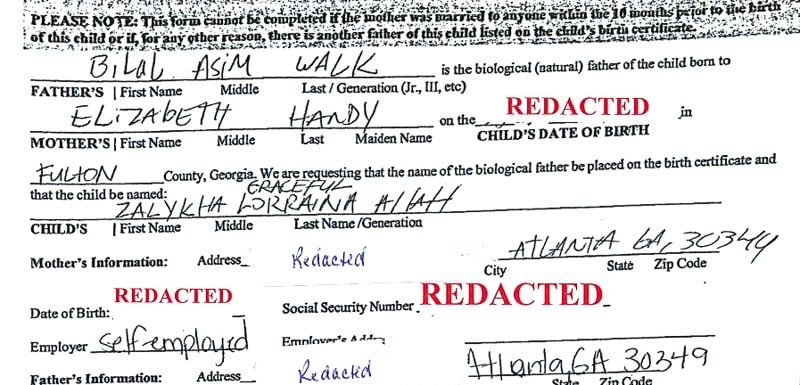 PLEASE NOTE: This form cannot be completed if the mother was married to anyone within the 10 months prior to the birth
of this child or if, for any other reason, there is another father of this child listed on the child's birth certificate.
BILAL ASIM WALK is the biological (natural) father of the child born to
FATHER'S | First Name Middle Last / Generation (Jr., III, etc)
ELIZABETH HANDY on the REDACTED in
MOTHER'S | First Name Middle Last Maiden Name CHILD'S DATE OF BIRTH
FULTON County, Georgia. We are requesting that the name of the biological father be placed on the birth certificate and
that the child be named: GRACEFUL
ZALYKHA LORRAINA Allah
CHILD'S | First Name Middle Last Name/Generation
Mother's Information: Address Redacted ATLANTA GA, 30344
City State Zip Code
Date of Birth: REDACTED Social Security Number REDACTED
Employer Self employed Employer's Atlanta, GA 30349
Father's Information: Address Redacted State Zip Code